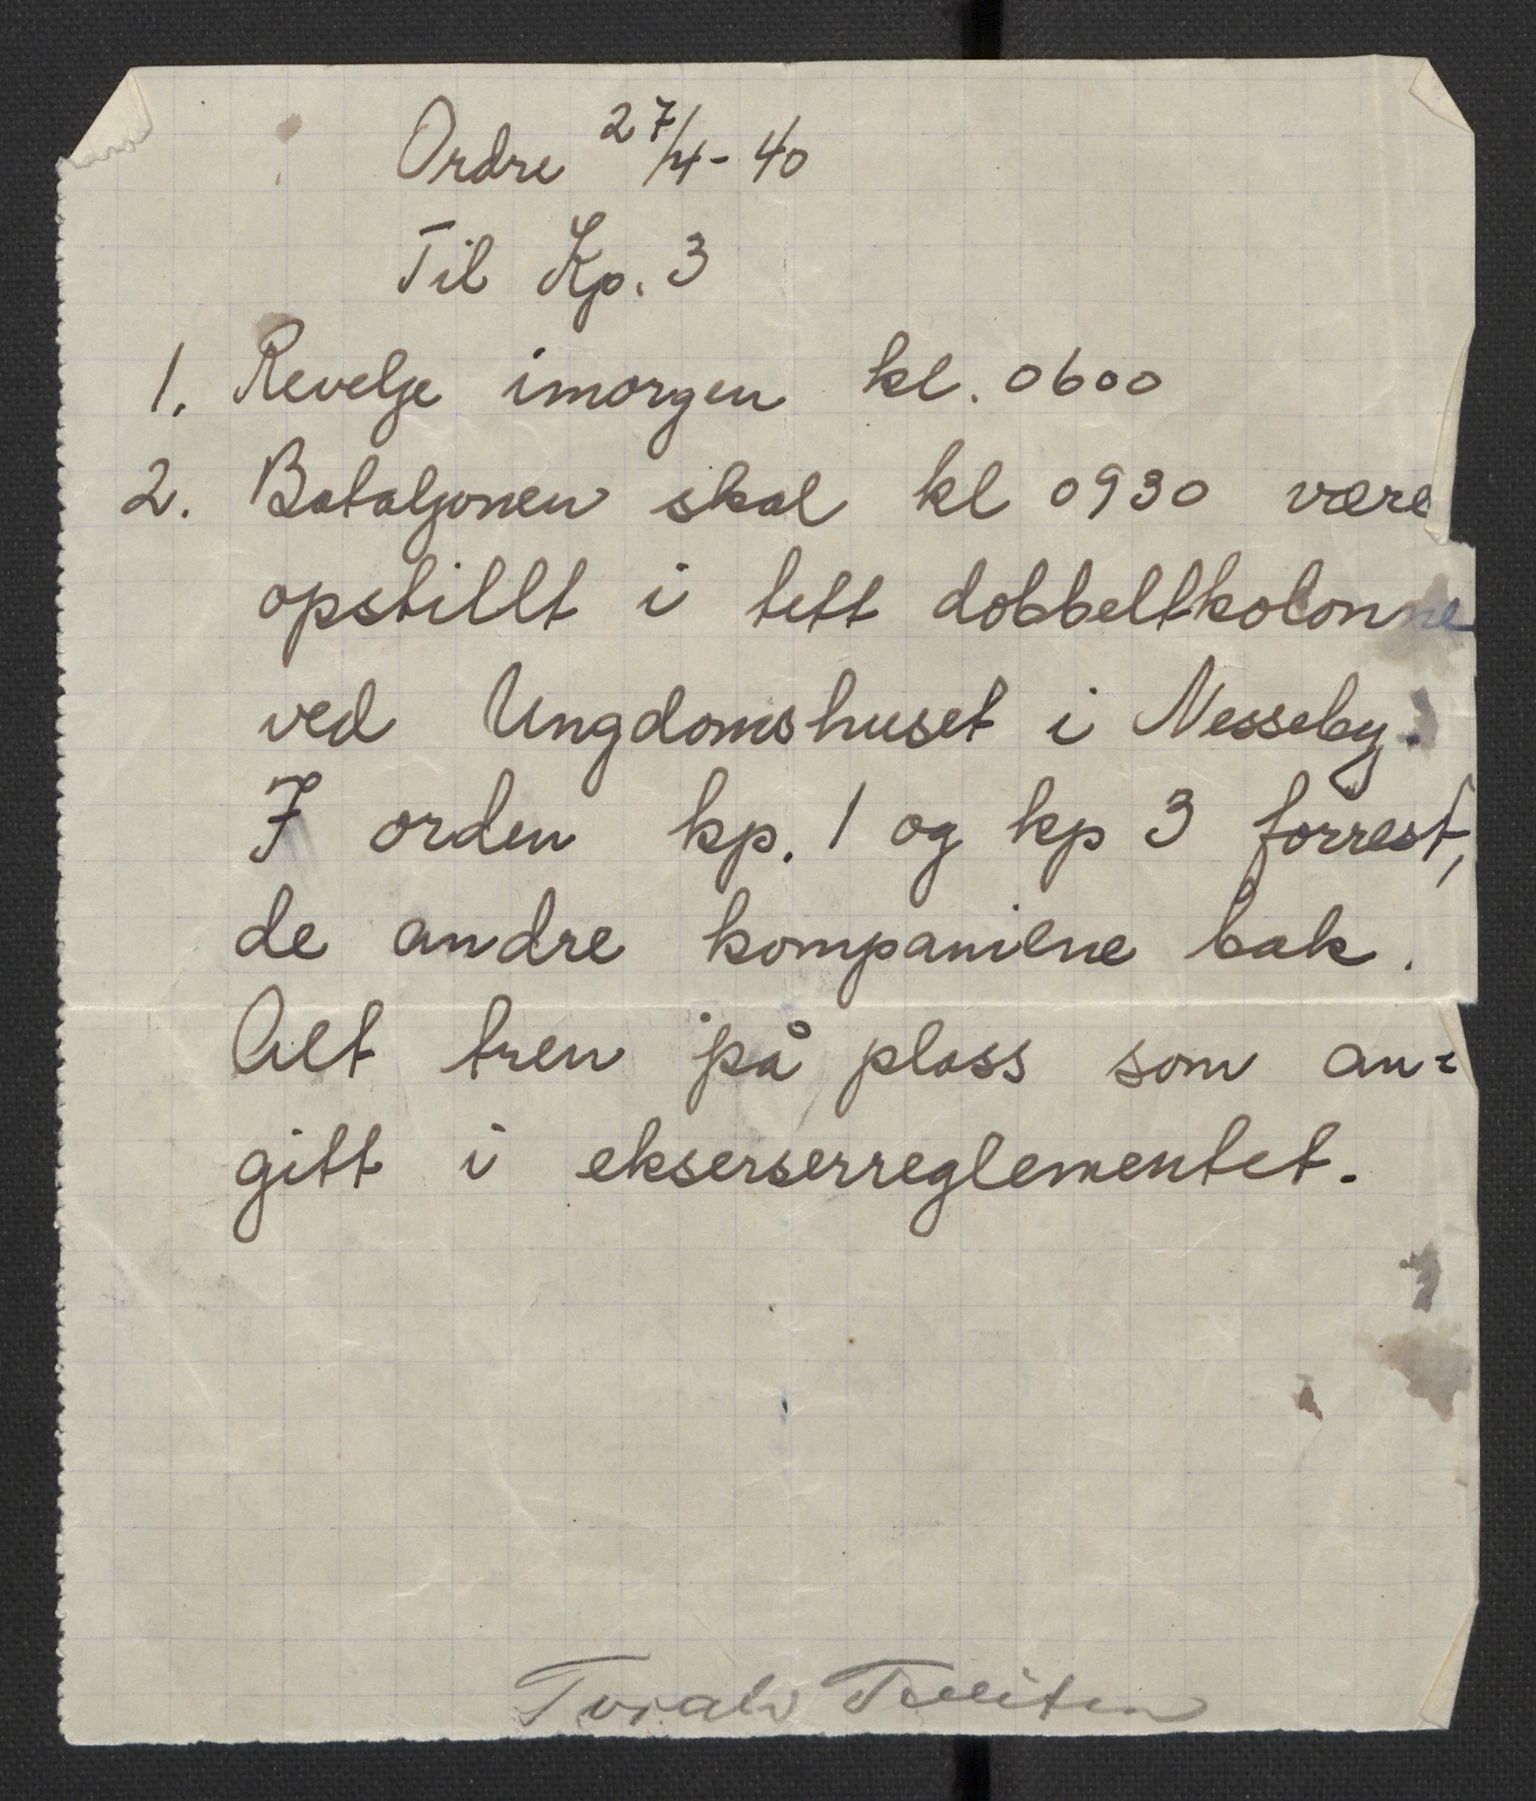 Ordre 27/4-40
Til Kp. 3
1. Revelje imorgen kl. 0600
2. Bataljonen skal kl 0930 være
opstillt i tett dobbeltkolonne
ved Ungdomshuset i Nesseby.
I orden kp. 1 og kp 3 forrest,
de andre kompaniene bak.
Alt tren på plass som an-
gitt i ekserserreglementet.